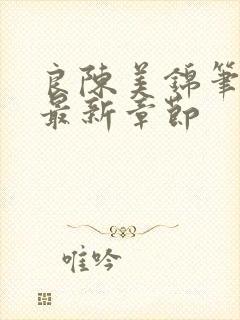 良陳美錦筆
最新章節
唯吟